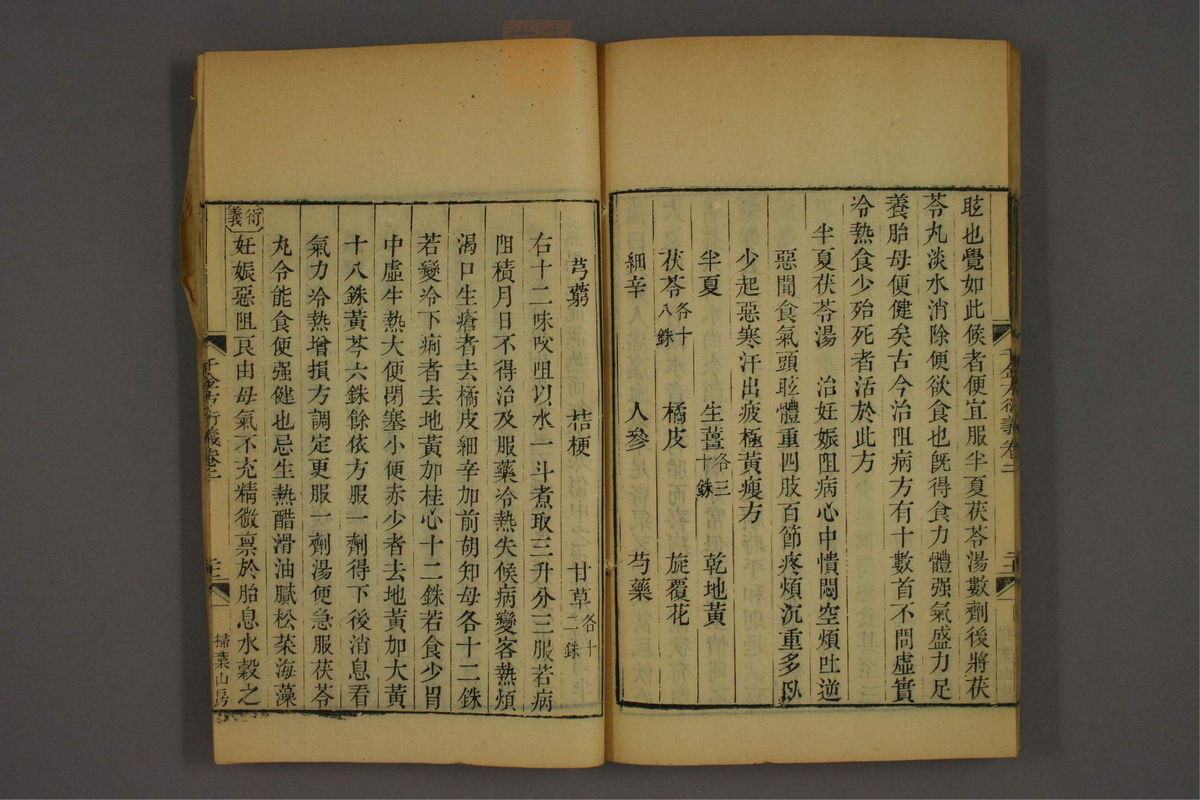 眩也覺如此候者便宜服半夏茯苓湯數劑後將茯
苓丸淡水消除便欲食也旣得食力體强氣盛力足
養胎母便健矣古今治阻病方有十數首不問虛實
冷熱食少殆死者活於此方
半夏茯苓湯　治妊娠阻病心中憒悶空煩吐逆
惡聞食氣頭眩體重四肢百節疼煩沉重多臥
少起惡寒汗出疲極黃瘦方
半夏　生薑各三十銖　乾地黃
茯苓各十八銖　橘皮　旋覆花
細辛　人參　芍藥
千金方衍義卷二
芎藭　桔梗　甘草各十二銖
右十二味㕮咀以水一斗煮取三升分三服若病
阻積月日不得治及服藥冷熱失候病變客熱煩
渴口生瘡者去橘皮細辛加前胡知母各十二銖
若變冷下痢者去地黃加桂心十二銖若食少胃
中虛生熱大便閉塞小便赤少者去地黃加大黃
十八銖黃芩六銖餘依方服一劑得下後消息看
氣力冷熱增損方調定更服一劑湯便急服茯苓
丸令能食便强健也忌生熱醋滑油膩松菜海藻
衍義
妊娠惡阻良由母氣不充精微禀於胎息水穀之
千金方衍義卷二
掃葉山房